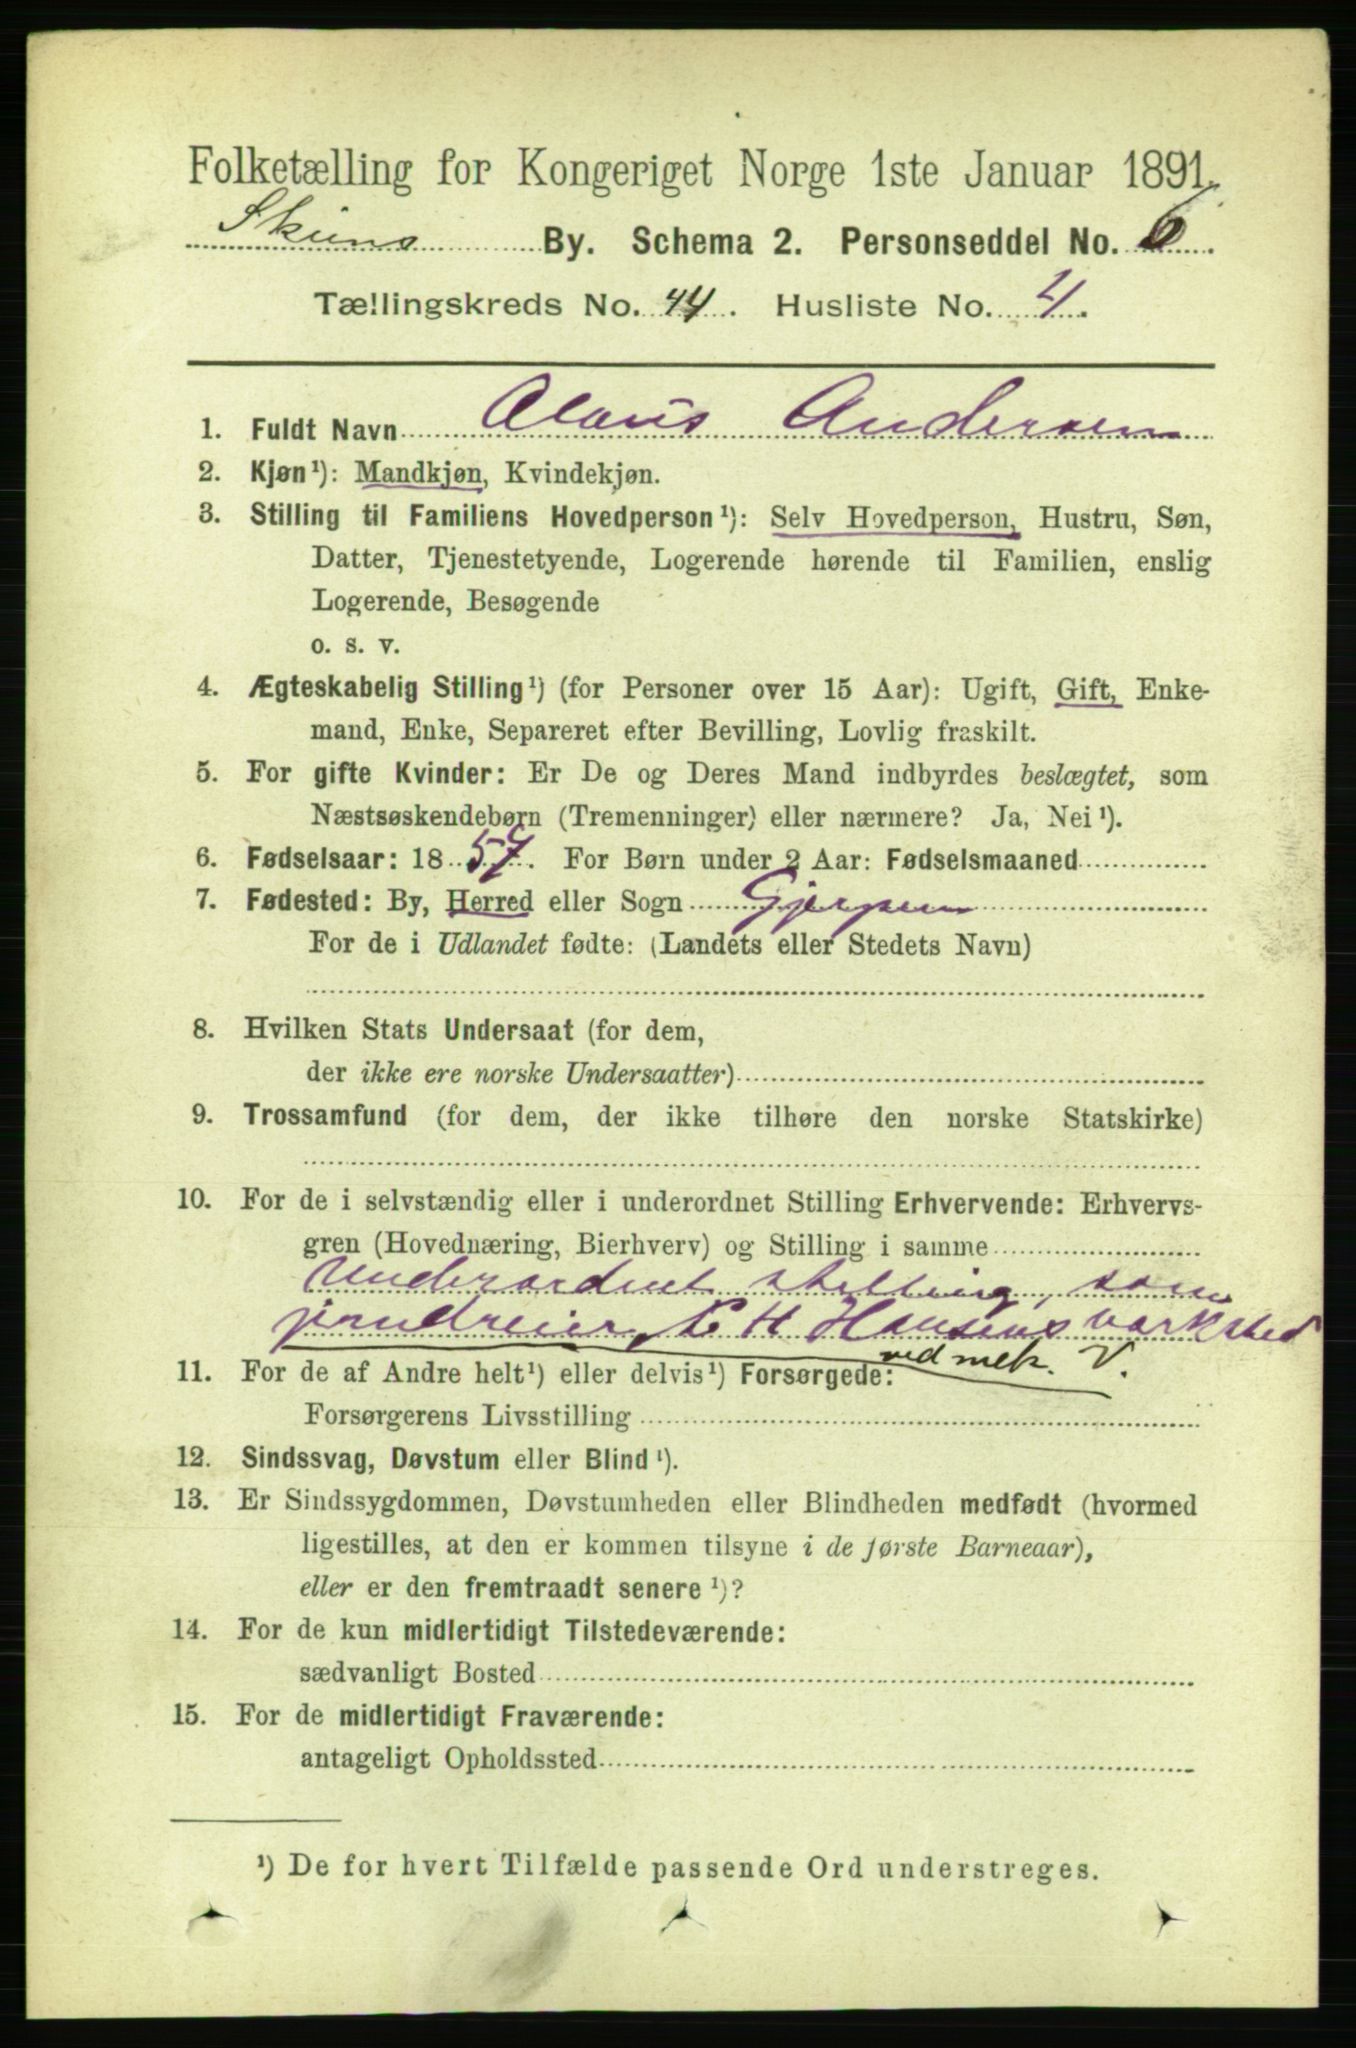 Folketælling for Kongeriget Norge 1ste Januar 1891.
Skiens By. Schema 2. Personseddel No. 6.
Tællingskreds No. 44. Husliste No. 4.
1. Fuldt Navn Claus Andersen
2. Kjøn¹): Mandkjøn, Kvindekjøn.
3. Stilling til Familiens Hovedperson¹): Selv Hovedperson, Hustru, Søn,
Datter, Tjenestetyende, Logerende hørende til Familien, enslig
Logerende, Besøgende
o. s. v.
4. Ægteskabelig Stilling¹) (for Personer over 15 Aar): Ugift, Gift, Enke-
mand, Enke, Separeret efter Bevilling, Lovlig fraskilt.
5. For gifte Kvinder: Er De og Deres Mand indbyrdes beslægtet, som
Næstsøskendebørn (Tremenninger) eller nærmere? Ja, Nei¹).
6. Fødselsaar: 1857. For Børn under 2 Aar: Fødselsmaaned
7. Fødested: By, Herred eller Sogn Gjerpen
For de i Udlandet fødte: (Landets eller Stedets Navn)
8. Hvilken Stats Undersaat (for dem,
der ikke ere norske Undersaatter)
9. Trossamfund (for dem, der ikke tilhøre den norske Statskirke)
10. For de i selvstændig eller i underordnet Stilling Erhvervende: Erhvervs-
gren (Hovednæring, Bierhverv) og Stilling i samme
Underordnet stelling, som
jerndreier, H Hansens varksted
ved mek. V.
11. For de af Andre helt¹) eller delvis¹) Forsørgede:
Forsørgerens Livsstilling
12. Sindssvag, Døvstum eller Blind¹).
13. Er Sindssygdommen, Døvstumheden eller Blindheden medfødt (hvormed
ligestilles, at den er kommen tilsyne i de første Barneaar),
eller er den fremtraadt senere¹)?
14. For de kun midlertidigt Tilstedeværende:
sædvanligt Bosted
15. For de midlertidigt Fraværende:
antageligt Opholdssted
¹) De for hvert Tilfælde passende Ord understreges.